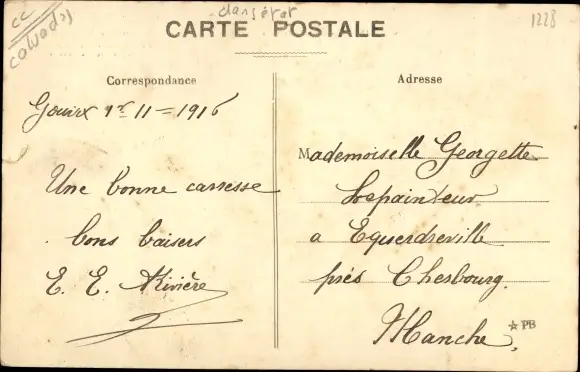 cc
calvados
dansétat
1228
CARTE POSTALE
Correspondance
Adresse
Gouix 1er 11 = 1916
Une bonne carresse
bons baisers
E. E. Rivière
Mademoiselle Georgette
Lepainteur
a Equerdreville
prés Cherbourg.
Manche
PB